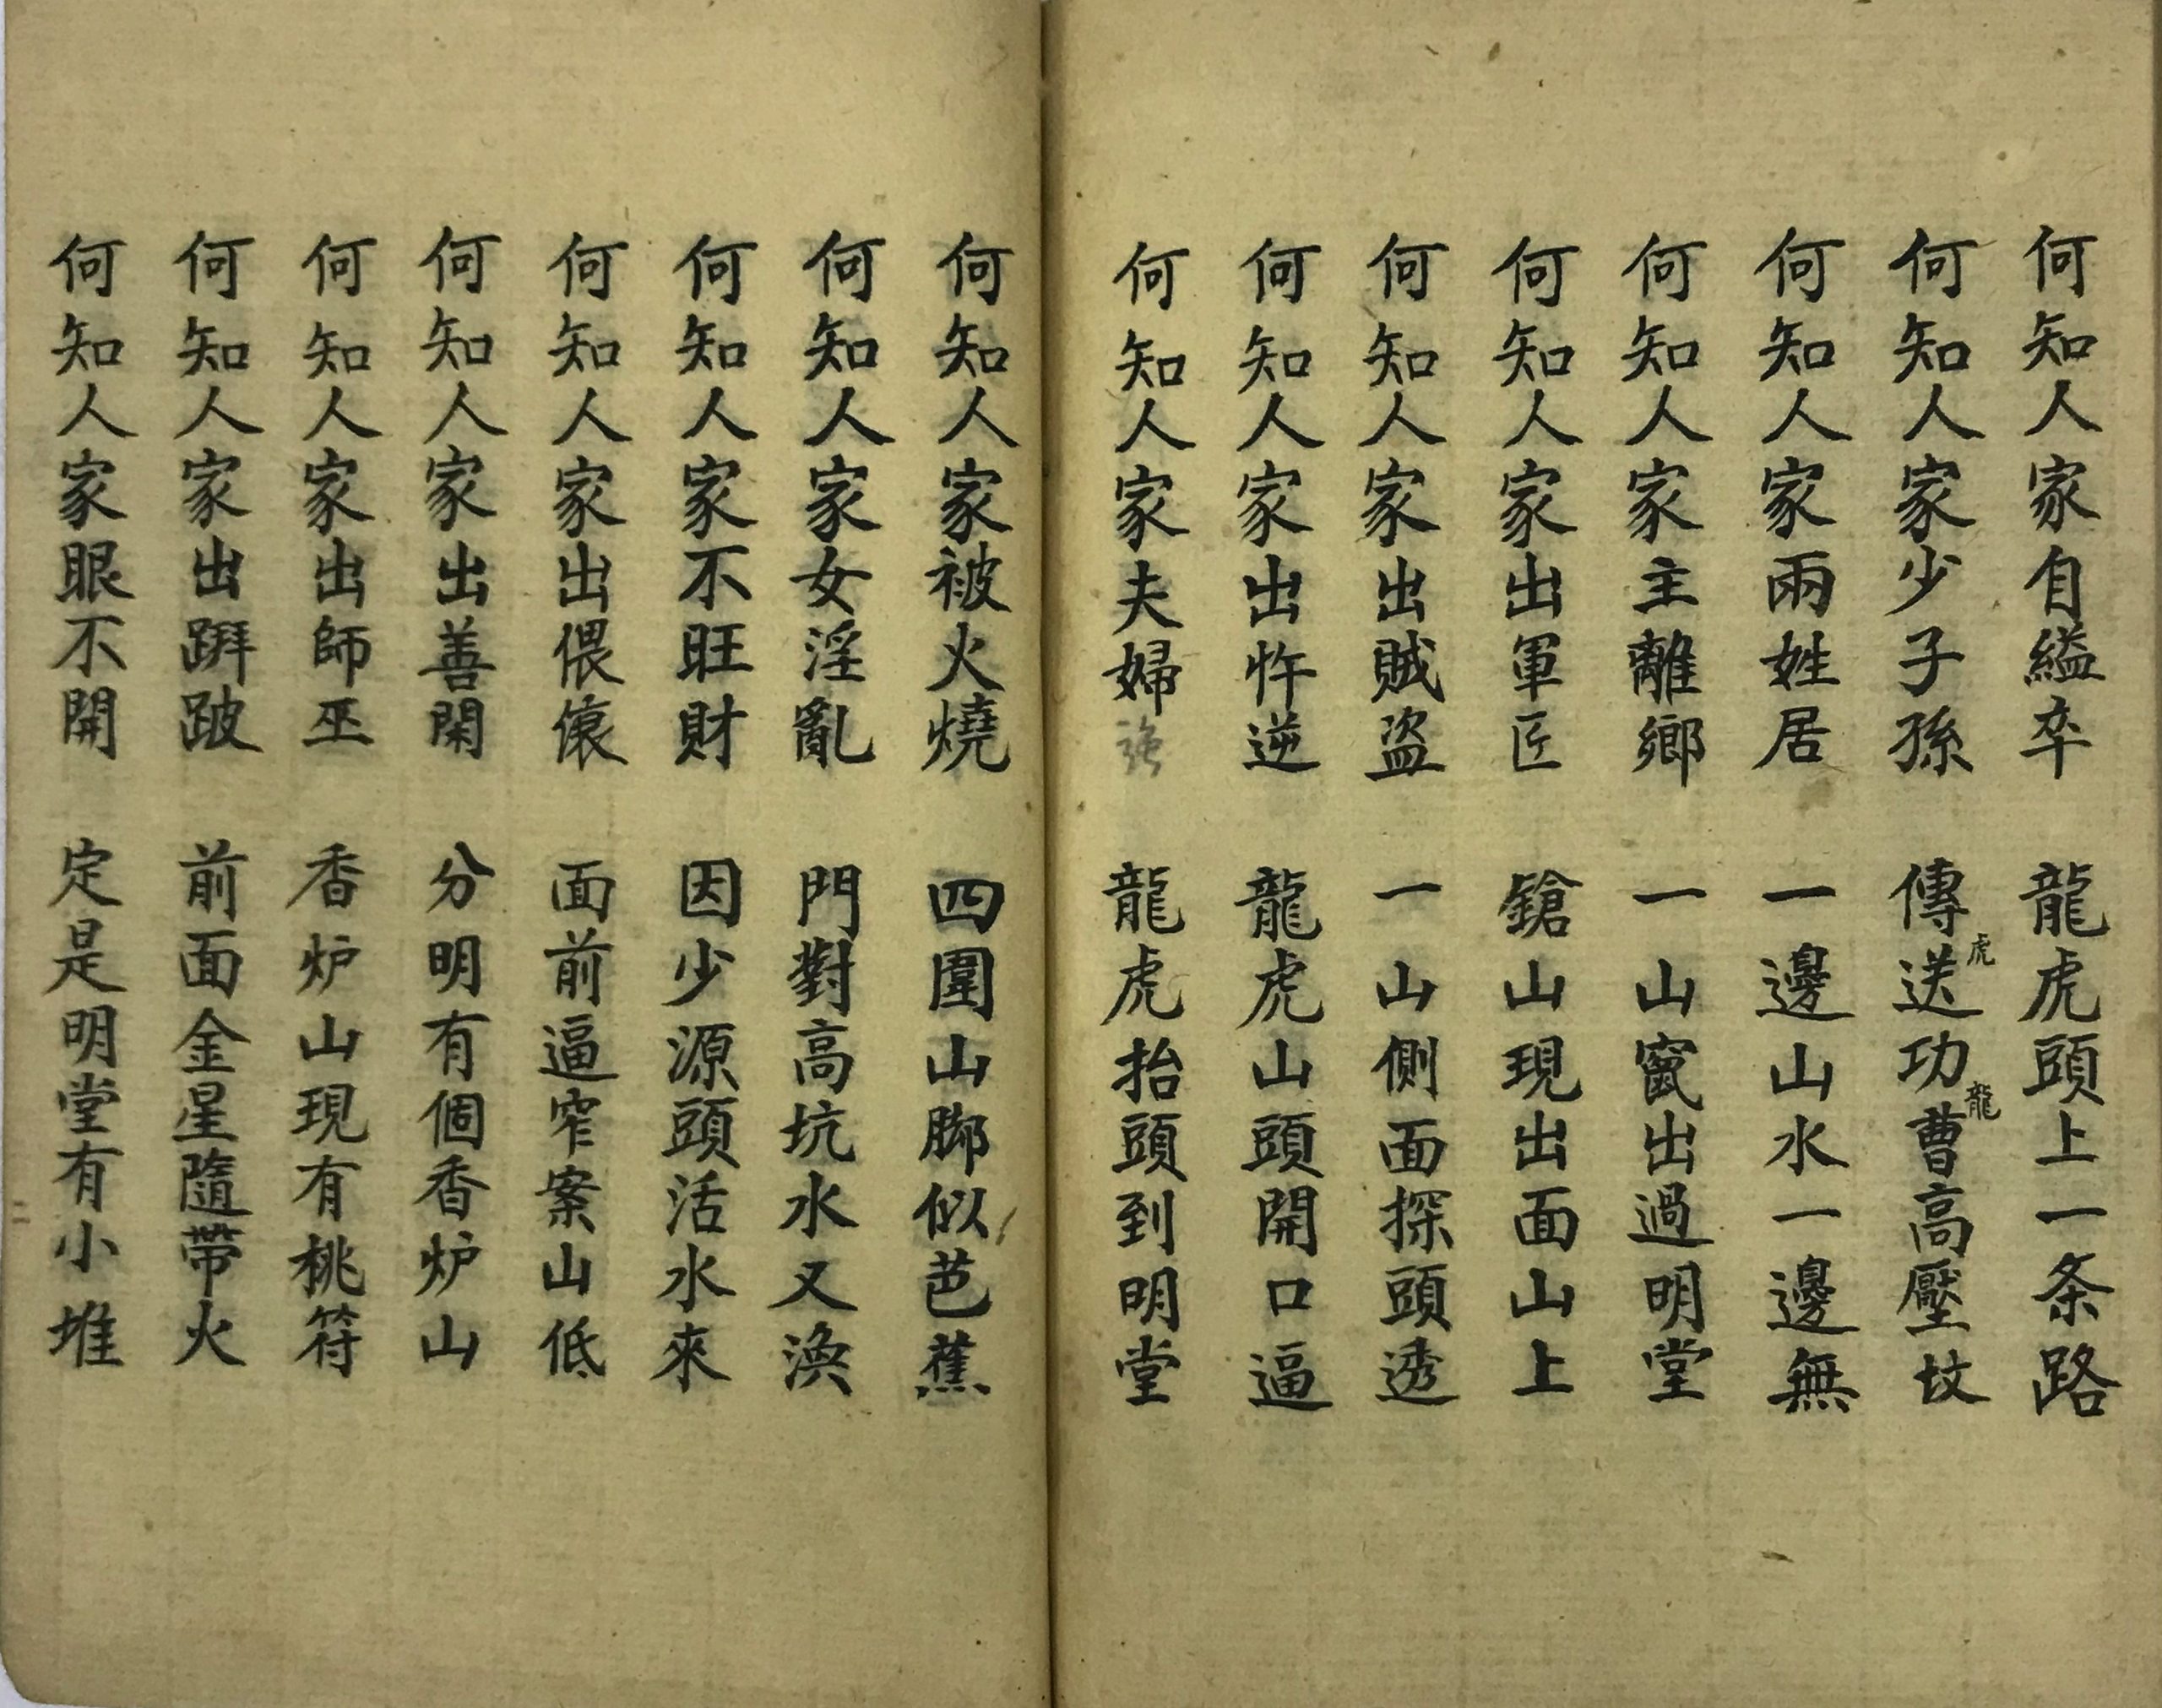 何知人家自縊卒 龍虎頭上一条路
何知人家少子孫 傳送虎功曹龍高壓坟
何知人家兩姓居 一邊山水一邊無
何知人家主離鄉 一山竄出過明堂
何知人家出軍匠 鎗山現出面山上
何知人家出賊盜 一山側面探頭透
何知人家出忤逆 龍虎山頭開口逼
何知人家夫婦 龍虎抬頭到明堂
何知人家被火燒 四圍山腳似芭蕉
何知人家女淫亂 門對高坑水又渙
何知人家不旺財 因少源頭活水來
何知人家出偎儴 面前逼窄案山低
何知人家出善閑 分明有個香炉山
何知人家出師巫 香炉山現有桃符
何知人家出跰跛 前面金星隨帶火
何知人家眼不開 定是明堂有小堆